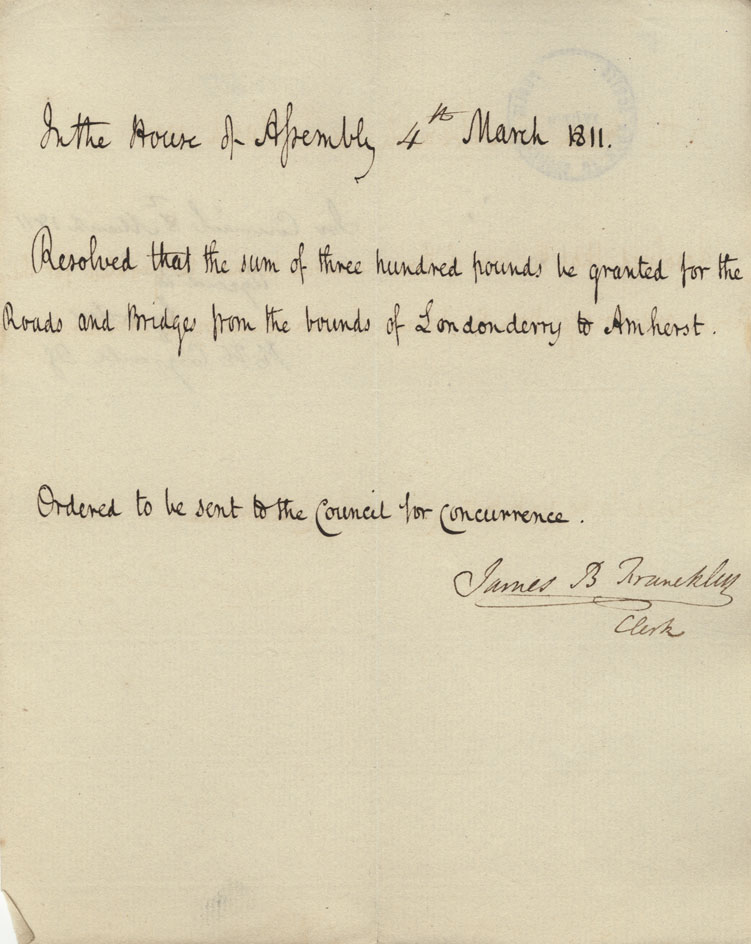 In the House of Assembly 4th March 1811.
Resolved that the sum of three hundred pounds be granted for the
Roads and Bridges from the bounds of Londonderry to Amherst.
Ordered to be sent to the Council for Concurrence.
James B Francklin
Clerk